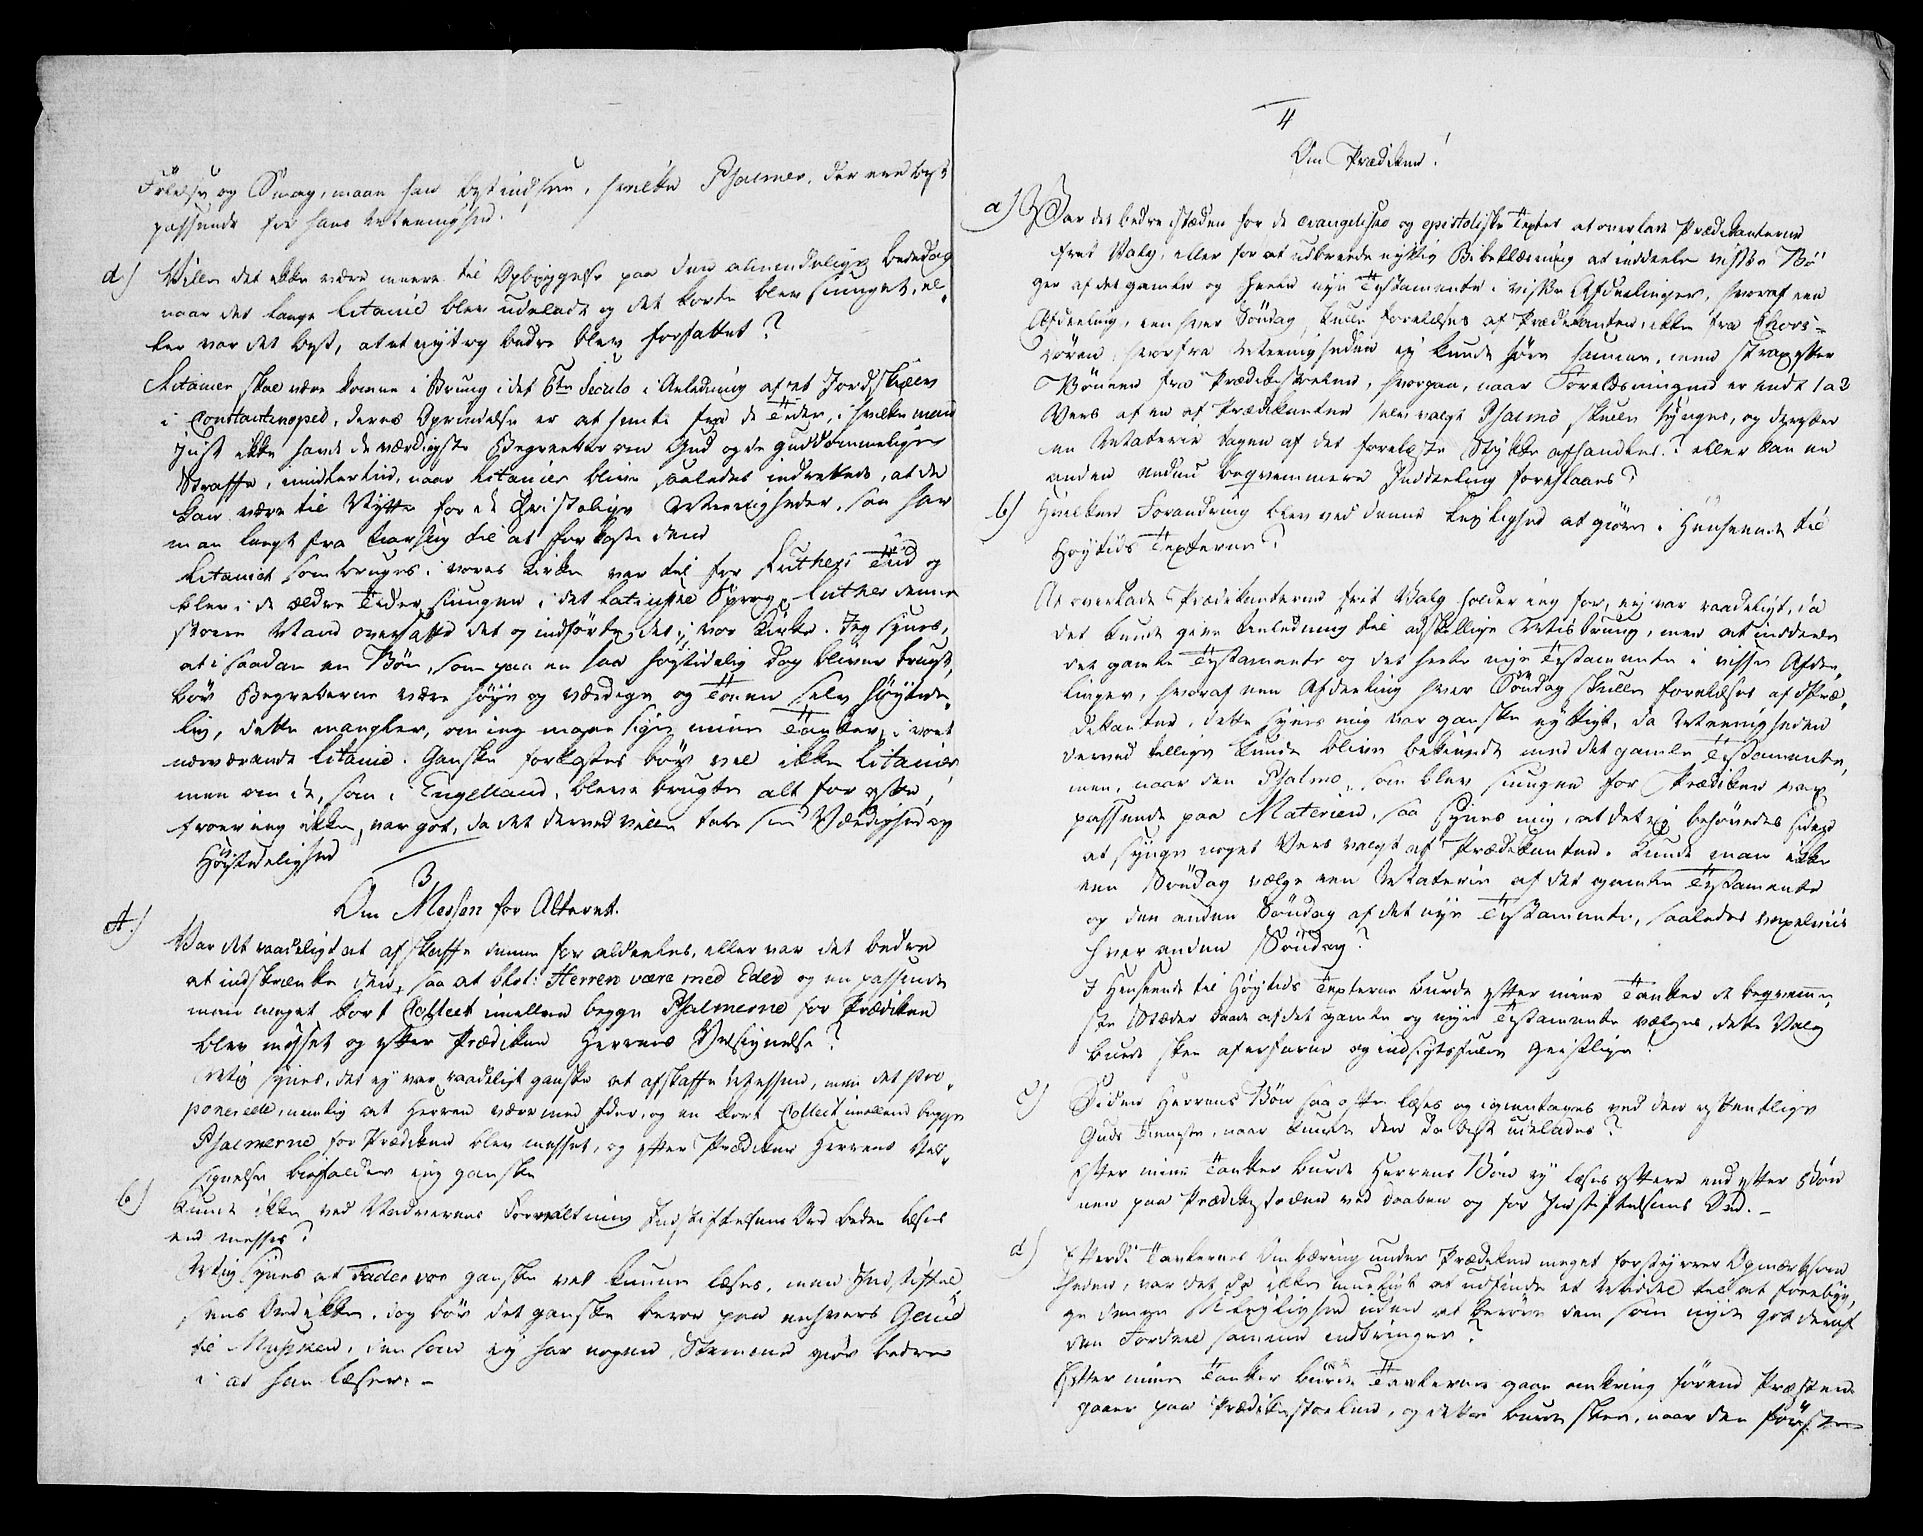 Følelse og Smag, maae han best indsee, hvilke Psalmer, der ere best
passende for hans Meenighed.
d) Ville det ikke være meere til Opbyggelse paa den almindelige Bededag
naar det lange Litanie blev udeladt og det korte blev siunget, el-
ler var det best, at et nyt og bedre blev forfattet?
Litanier skal være komne i Brug i det 5te Seculo i Anledning af et Jordskielv
i Constantinopel, deres Oprindelse er at hente fra de Tider, i hvilke man
just ikke havde de værdigste Begreeber om Gud og de guddommelige
Straffe, imidlertid, naar Litanier blive saaledes indrettede, at de
kan være til Nytte for de Christelige Meenigheder, saa har
man langt fra Aarsag til at forkaste dem
Litaniet som bruges i vores Kirke var til før Luthers Tid og
blev i de ældre Tider siunget i det latinske Sprog. Luther denne
store Mand oversatte det og indførte det i vor Kirke. Jeg synes,
at i saadan en Bøn, som paa en saa høitidelig Dag bliver brugt,
bør Begreberne være høye og værdige og Tonen selv høytide-
lig, dette mangler, om jeg maae sige mine Tanker, i vort
nærværende Litanie. Ganske forkastes bør vel ikke Litanier,
men om de, som i Engelland, bleve brugte alt for ofte,
troer jeg ikke, var got, da det derved ville tabe sin Værdighed og
Høytidelighed
3
Om Messen for Alteret.
A.) Var det raadeligt at afskaffe denne for aldeeles, eller var det bedre
at indskrænke den, saa at blot: Herren være med Eder og en passende
men meget kort Collect imellem begge Psalmerne for Prædiken
blev messet og efter Prædiken Herrens Velsignelse?
Mig synes, det ey var raadeligt ganske at afskaffe Messen, men det pro-
ponerede, nemlig at Herren være med Eder, og en kort Collect imellem begge
Psalmerne for Prædiken blev messet, og efter Prædiken Herrens Vel-
signelse, bifalder jeg ganske
b) Kunde ikke ved Nadverens Forvaltning Indstiftelsens Ord bedre læses
end messes?
Mig synes at Fader vor ganske vel kunne læses, men Indstiftel
sens Ord ikke, dog bør det ganske beroe paa enhvers Genie
til Musiken, den som ey har nogen Stemme giør bedre
i at han læser. –
4
Om Prædiken!
a) Var det bedre istæden for de evangeliske og epistoliske Texter at overlade Prædikanterne
frit Valg, eller for at udbreede nyttig Bibellæsning at inddeele visse Bø
ger af det gamle og heele nye Testamente i visse Afdeelinger, hvoraf een
Afdeeling, een hver Søndag skulle forelæses af Prædikanten, ikke fra Chors-
døren, hvorfra Meenigheden ey kunde høre samme, men strax efter
Bønnen fra Prædikestoelen, hvorpaa, naar Forelæsningen er endt 1 a 2
Vers af en af Prædikanten selv valgt Psalme skulle synges, og derefter
en Materie tagen af det forelæste Stykke afhandles? eller kan en
anden endnu beqvemmere Inddeeling foreslaaes?
b) Hvilken Forandring blev ved denne Leylighed at giøre i Henseende til
Høytids Texterne?
At overlade Prædikanterne frit Valg holder jeg for, ey var raadeligt, da
det kunde give Anledning til adskillige Misbrug, men at inddeele
det gamle Testamente og det heele nye Testamente i visse Afdee-
linger, hvoraf een Afdeeling hver Søndag skulle forelæses af Præ-
dikanten, dette synes mig var ganske nyttigt, da Meenigheden
derved tillige kunde blive bekiendt med det gamle Testamente,
men, naar den Psalme, som blev siungen for Prædiken var
passende paa Materien, saa synes mig, at det ey behøvedes siden
at synge noget Vers valgt af Prædikanten. Kunde man ikke
een Søndag vælge een Materie af det gamle Testamente
og den anden Søndag af det nye Testamente, saaledes vexelviis
hver anden Søndag?
I Henseende til Høytids Texterne burde efter mine Tanker de beqvemme
ste Stæder baade af det gamle og nye Testamente vælges, dette Valg
burde skee af erfarne og indsigtsfulde Geistlige.
c) Siden Herrens Bøn saa ofte læses og igientages ved den offentlige
Guds Tieneste, naar kunde den da best udelades?
Efter mine Tanker burde Herrens Bøn ey læses oftere end efter Bøn
nen paa Prædikestoelen ved Daaben og for Indstiftelsens Ord. –
d) Efterdi Tavlernes Ombæring under Prædiken meget forstyrrer Opmærksom
heden, var det da ikke mueligt at udfinde et Middel til at forebyg-
ge denne Uleylighed uden at berøve dem som nyde got deraf
den Fordeel samme indbringer?
Efter mine Tanker burde Tavlerne gaae omkring førend Præsten
gaaer paa Prædikestoelen, og dette burde skee, naar den første